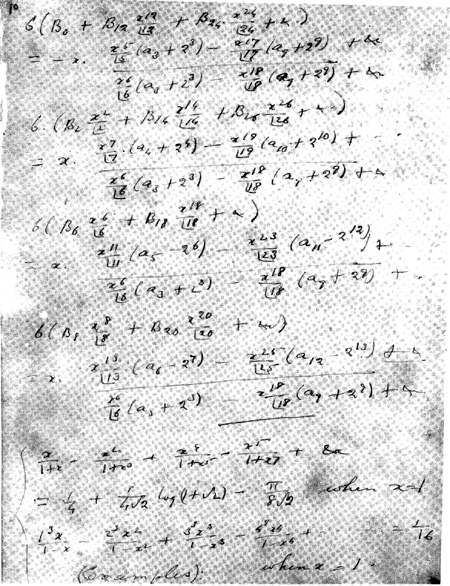 6(B₀ + B₁₂ x¹²/|12 + B₂₄ x²⁴/|24 + &c)
= -x. x⁵/|5 (a₃ + 2³) - x¹⁷/|17 (a₉ + 2⁹) + &c
x⁶/|6 (a₃ + 2³) - x¹⁸/|18 (a₉ + 2⁹) + &c
6.(B₂ x²/|2 + B₁₄ x¹⁴/|14 + B₂₆ x²⁶/|26 + &c)
= x. x⁷/|7 (a₄ + 2⁴) - x¹⁹/|19 (a₁₀ + 2¹⁰) + . .
x⁶/|6 (a₃ + 2³) - x¹⁸/|18 (a₉ + 2⁹) + &c
6(B₆ x⁶/|6 + B₁₈ x¹⁸/|18 + &c)
= x. x¹¹/|11 (a₅ - 2⁶) - x²³/|23 (a₁₁ - 2¹²) + .
x⁶/|6 (a₃ + 2³) - x¹⁸/|18 (a₉ + 2⁹) + .
6(B₈ x⁸/|8 + B₂₀ x²⁰/|20 + &c)
= x. x¹³/|13 (a₆ - 2⁷) - x²⁵/|25 (a₁₂ - 2¹³) + &c
x⁶/|6 (a₃ + 2³) - x¹⁸/|18 (a₉ + 2⁹) + &c
x/1+x - x²/1+x³ + /1+x⁵ - /1+x⁷ + &c
= 1/4 + 1/4√2 log(1+√2) - π/8√2 when x=1
1³x/1-x - 2³x²/1-x² + 3³x³/1-x³ - 4³x⁴/1-x⁴ + . = 1/16
(Examples). when x = 1.